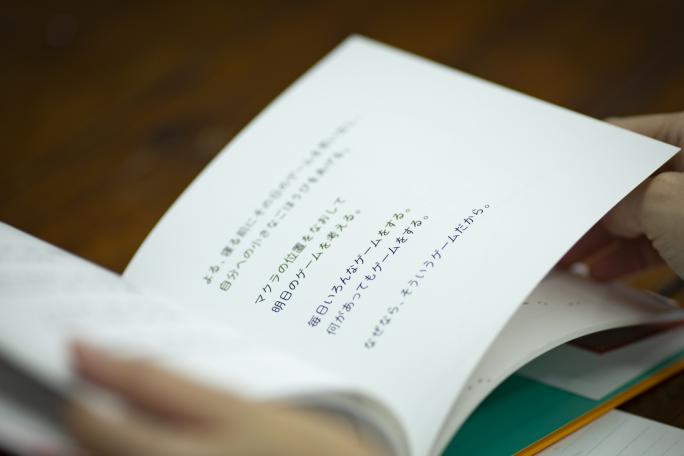 よる、寝る前にその日のゲームを
自分への小さなごほうびをあげる。
マクラの位置をなおして
明日のゲームを考える。
毎日いろんなゲームをする。
何があってもゲームをする。
なぜなら、そういうゲームだから。